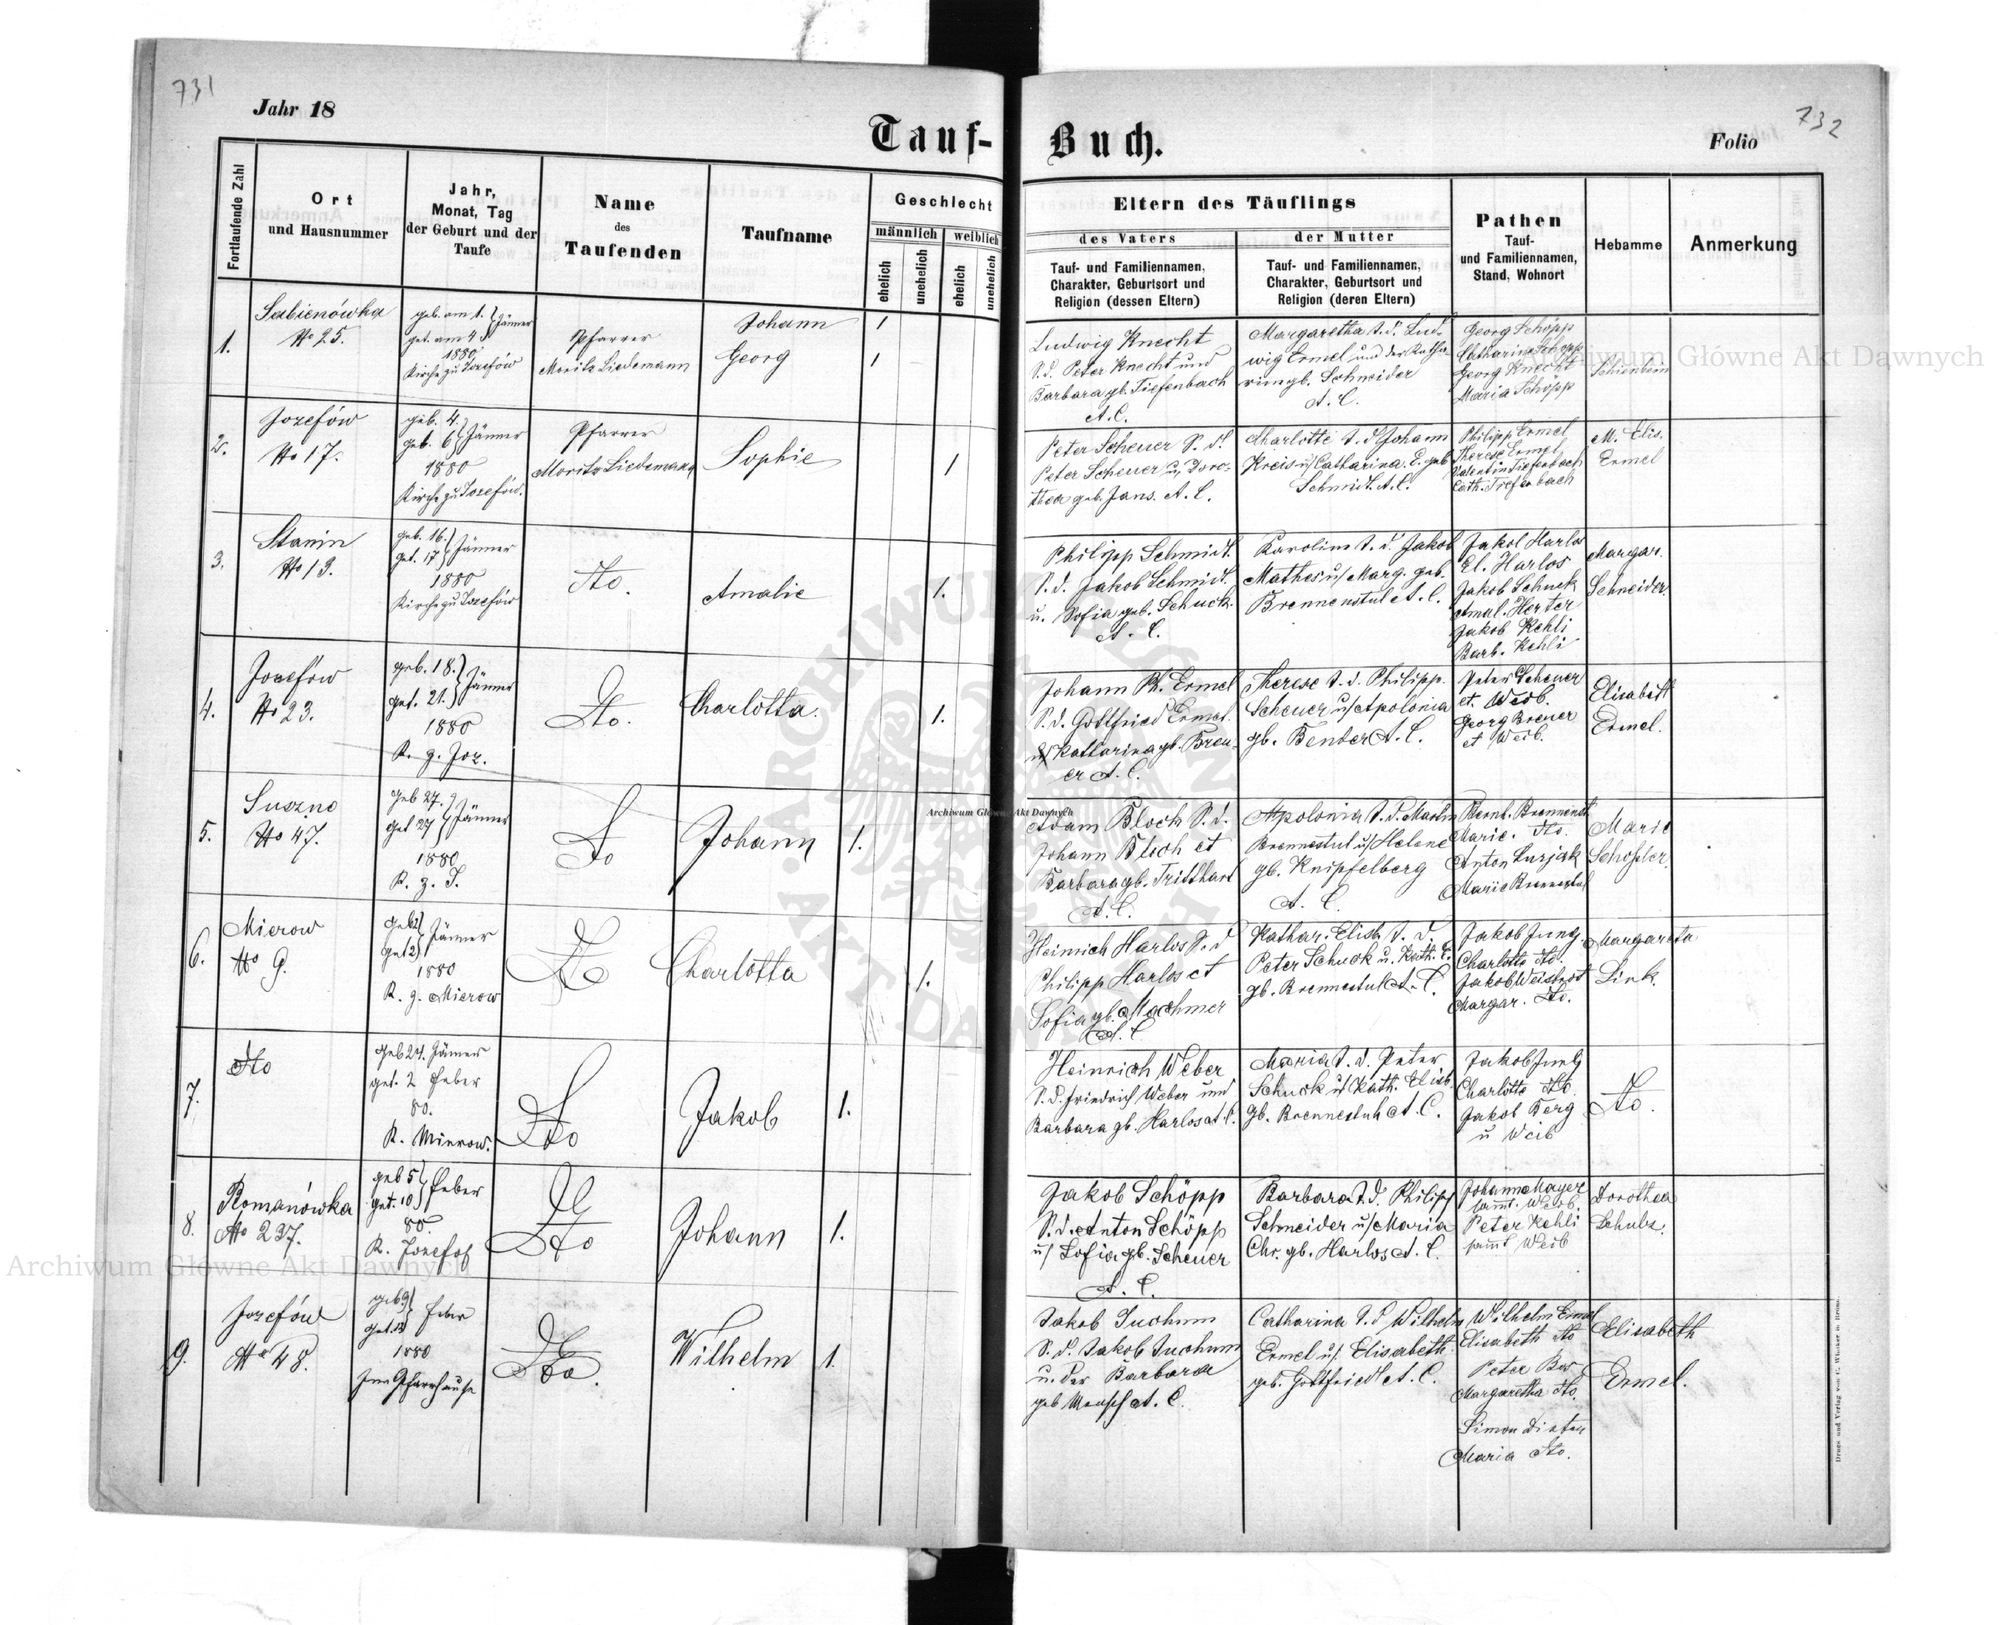 731
Jahr 18
Tauf-
Buch.
Folio
732
Fortlaufende Zahl
Ort
und Hausnummer
Jahr,
Monat, Tag
der Geburt und der
Taufe
Name
des
Taufenden
Taufname
Geschlecht
männlich
weiblich
ehelich
unehelich
ehelich
unehelich
Eltern des Täuflings
des Vaters
Tauf- und Familiennamen,
Charakter, Geburtsort und
Religion (dessen Eltern)
der Mutter
Tauf- und Familiennamen,
Charakter, Geburtsort und
Religion (deren Eltern)
Pathen
Tauf-
und Familiennamen,
Stand, Wohnort
Hebamme
Anmerkung
1.
Sabienówka
No 25.
geb. am 1.
get. am 4
Jänner
1880
Kirche zu Josefów
Pfarrer
Moritz Liedemann
Johann
Georg
1
1
Ludwig Knecht
S. d. Peter Knecht und
Barbara gb. Tiefenbach
A. C.
Margaretha T. d. Lud-
wig Ermel und der Katha-
rina gb. Schneider
A. C.
Georg Schöpp
Catharina Schöpp
Georg Knecht
Maria Schöpp
2.
Jozefów
No 17.
geb. 4.
get. 6
Jänner
1880
Kirche zu Josefów.
Pfarrer
Moritz Liedemann
Sophie
1
Peter Scheuer S. d.
Peter Scheuer u. Doro-
thea geb. Jans. A. C.
Charlotte T. d. Johann
Kreis u/ Catharina E. geb.
Schmidt. A. C.
Philipp Ermel
Therese Ermel
Valentin Tiefenbach
Cath. Tiefenbach
M. Elis.
Ermel
3.
Stanin
No 13.
geb. 16.
get. 17
Jänner
1880
Kirche zu Josefów
Dto.
Amalie
1.
Philipp Schmidt.
S. d. Jakob Schmidt.
u. Sofia geb. Schuck.
A. C.
Karolina T. d. Jakob
Mathes u/ Marg. geb.
Brennenstul A. C.
Jakob Harlos
El. Harlos
Jakob Schuck
Amal. Herter
Jakob Kehli
Barb. Kehli
Margar.
Schneider
4.
Jozefów
No 23.
geb. 18.
get. 21.
Jänner
1880
K. z. Joz.
Dto.
Charlotta.
1.
Johann Ph. Ermel
S. d. Gottfried Ermel.
u/ Katharina gb. Breu-
er A. C.
Therese T. d. Philipp.
Scheuer u/ Apolonia
gb. Bender A. C.
Peter Scheuer
et. Weib.
Georg Breuer
et Weib.
Elisabeth
Ermel.
5.
Suszno
No 47.
geb 27.
get 27
Jänner
1880
K. z. J.
Dto
Johann
1.
Adam Bloch S. d.
Johann Bloch et
Barbara gb. Tritthart
A. C.
Apolonia T. d. Martin
Brennestul u/ Helene
gb. Knipfelberg
A. C.
Marie. Dto.
Anton Lurjak
Marie Brennestul
Marie
6.
Mierow
No 9.
Jänner
1880
K. z. Mierow
Dto
Charlotta
1.
Heinrich Harlos S. d
Philipp Harlos et
Sofia gb. Machmer
A. C.
Kathar. Elisb. T. d.
Peter Schuck u. Kath. E.
gb. Brennestul A. C.
Jakob Jung.
Charlotte Dto.
Jakob Weissbrodt
Margar. Dto.
Margareta
Link.
7.
Dto
geb 27. Jänner
get. 2 Feber
80.
K. Mierow.
Dto
Jakob
1.
Heinrich Weber
S. d. Friedrich Weber und
Barbara gb. Harlos A. C.
Maria T. d. Peter
Schuck u/ Kath. Elisb.
gb. Brennestuh A. C.
Jakob Jung
Charlotte Dto.
Jakob Berg
u Weib
Dto.
8.
Romanówka
No 237.
geb 5
get. 10
Feber
80.
K. Josefof
Dto
Johann
1.
Jakob Schöpp
S. d. Anton Schöpp
u/ Sofia gb. Scheuer
A. C.
Barbara T. d. Philipp
Schneider u/ Maria
Chr. gb. Harlos A. C.
Johann Mayer
samt. Weib.
Peter Kehli
samt Weib
Dorothea
Schubr.
9.
Jozefów
No 48.
geb 9
Feber
1880
Im Pfarrhause
Dto.
Wilhelm
1.
Jakob Juchum
S. d. Jakob Juchum
u. der Barbara
geb Mensch A. C.
Catharina T. d. Wilhelm
Ermel u/. Elisabeth
geb. Gottfried A. C.
Wilhelm Ermel
Elisabeth Dto
Margaretha Dto.
Maria Dto.
Elisabeth
Ermel.
Archiwum Główne Akt Dawnych
Archiwum Główne Akt Dawnych
Archiwum Główne Akt Dawnych